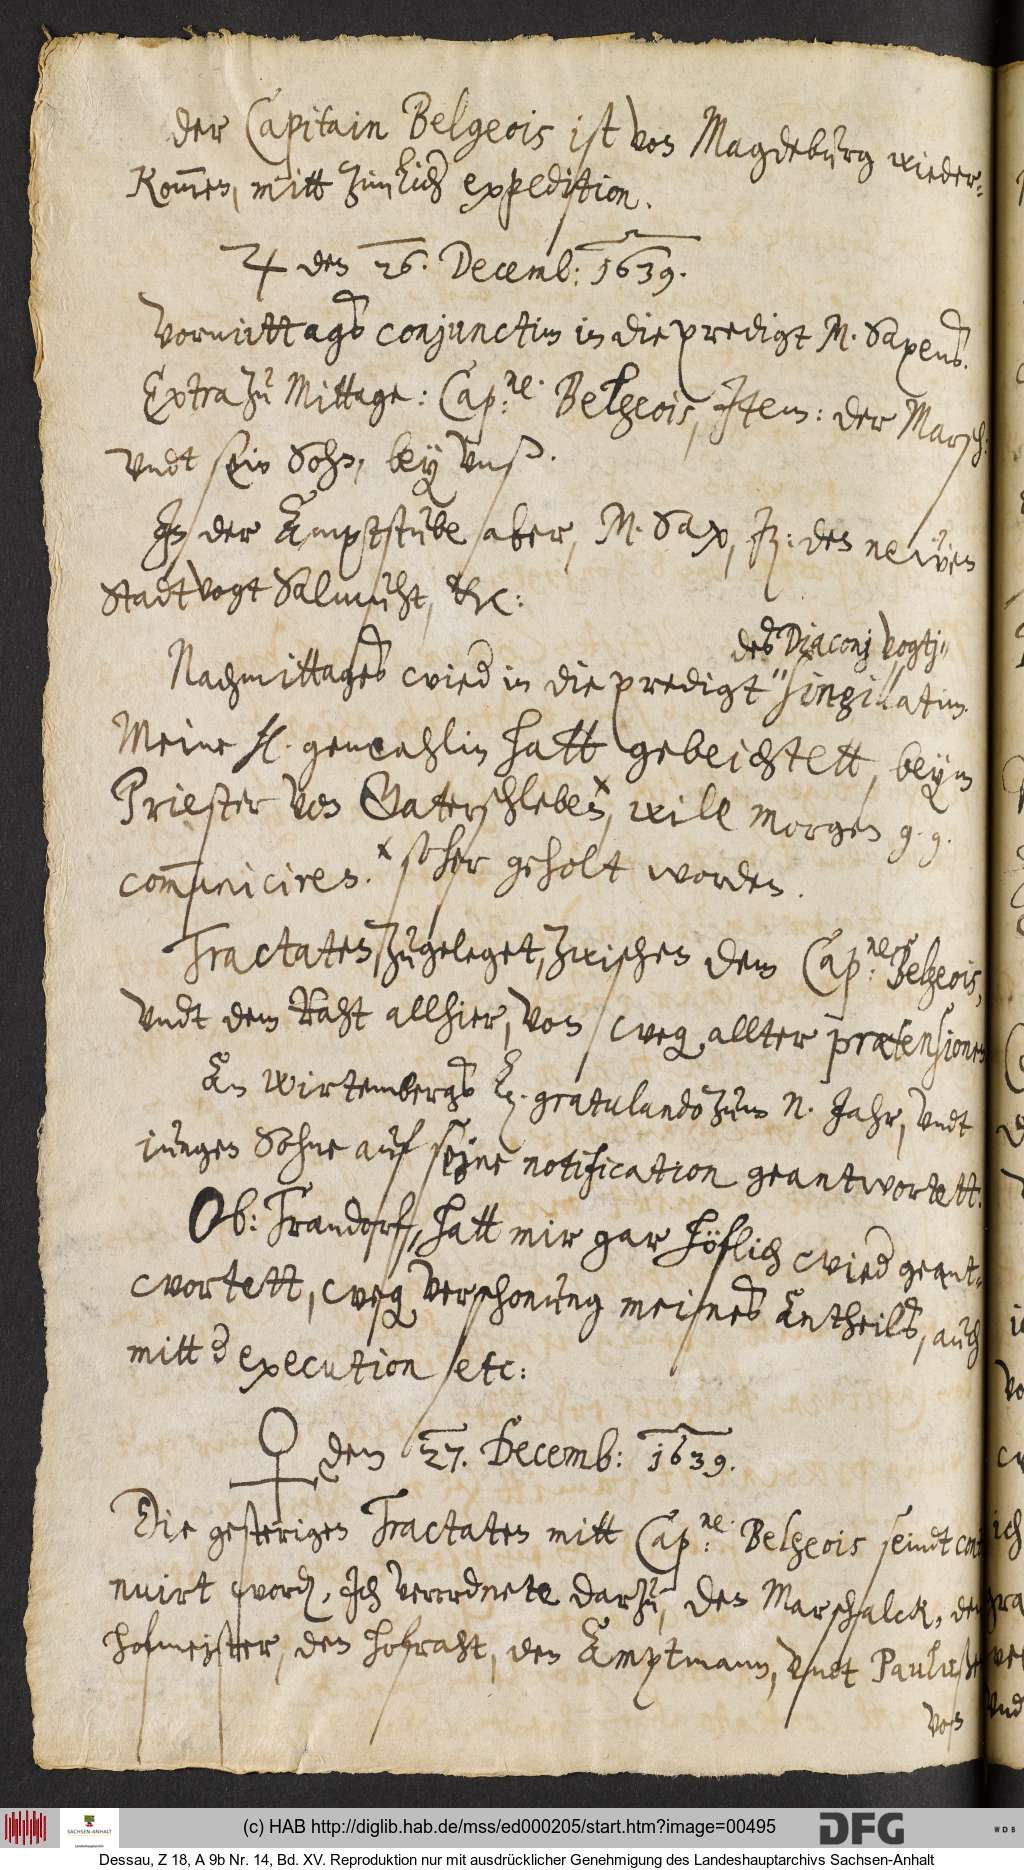 der Capitain Belgeois ist von Magdeburg wieder-
kom̅en, mitt zimlich expedition.
♃ den 26. Decemb: 1639.
Vormittags conjunctim in die predigt M. Saxens.
Extra zu Mittage: Cap:ne. Belgeois, Jtem: der Marsch:
vndt sein Sohn, bey vnß.
Jn der Amptstube aber, M. Sax, Jt: der newen
Stadtvogt Salmuht, etc:
des Diaconj Vogtj"
Nachmittages wied in die predigt " singillatim.
Meine fl. gemahlin hatt gebeichtett, beym
Priester von Gaterschleben ×, will morgen g. g.
com̅uniciren. × so her geholt worden.
Tractaten, zugeleget, zwischen dem Cap:ne Belgeois,
vndt dem Raht allhier, von weg. allter prætensionen
An Wirtembergs L. gratulando zum N. Jahr, vndt
jungen Sohne auf seine notification geantwortett.
Ob: Trandorf, hatt mir gar höflich wied geant-
wortett, weg. verschonung meines Antheils, auch
mitt d execution etc:
♀ den 27. Decemb: 1639.
Die gesterigen Tractaten mitt Cap:ne. Belgeois seindt conti
nuirt word. Jch verordnete darzu, den Marschalck, den
hofmeister, den hofraht, den Amptmann, vndt Paulußen
von
(c) HAB http://diglib.hab.de/mss/ed000205/start.htm?image=00495
DFG
WDB
SACHSEN-ANHALT
Dessau, Z 18, A 9b Nr. 14, Bd. XV. Reproduktion nur mit ausdrücklicher Genehmigung des Landeshauptarchivs Sachsen-Anhalt